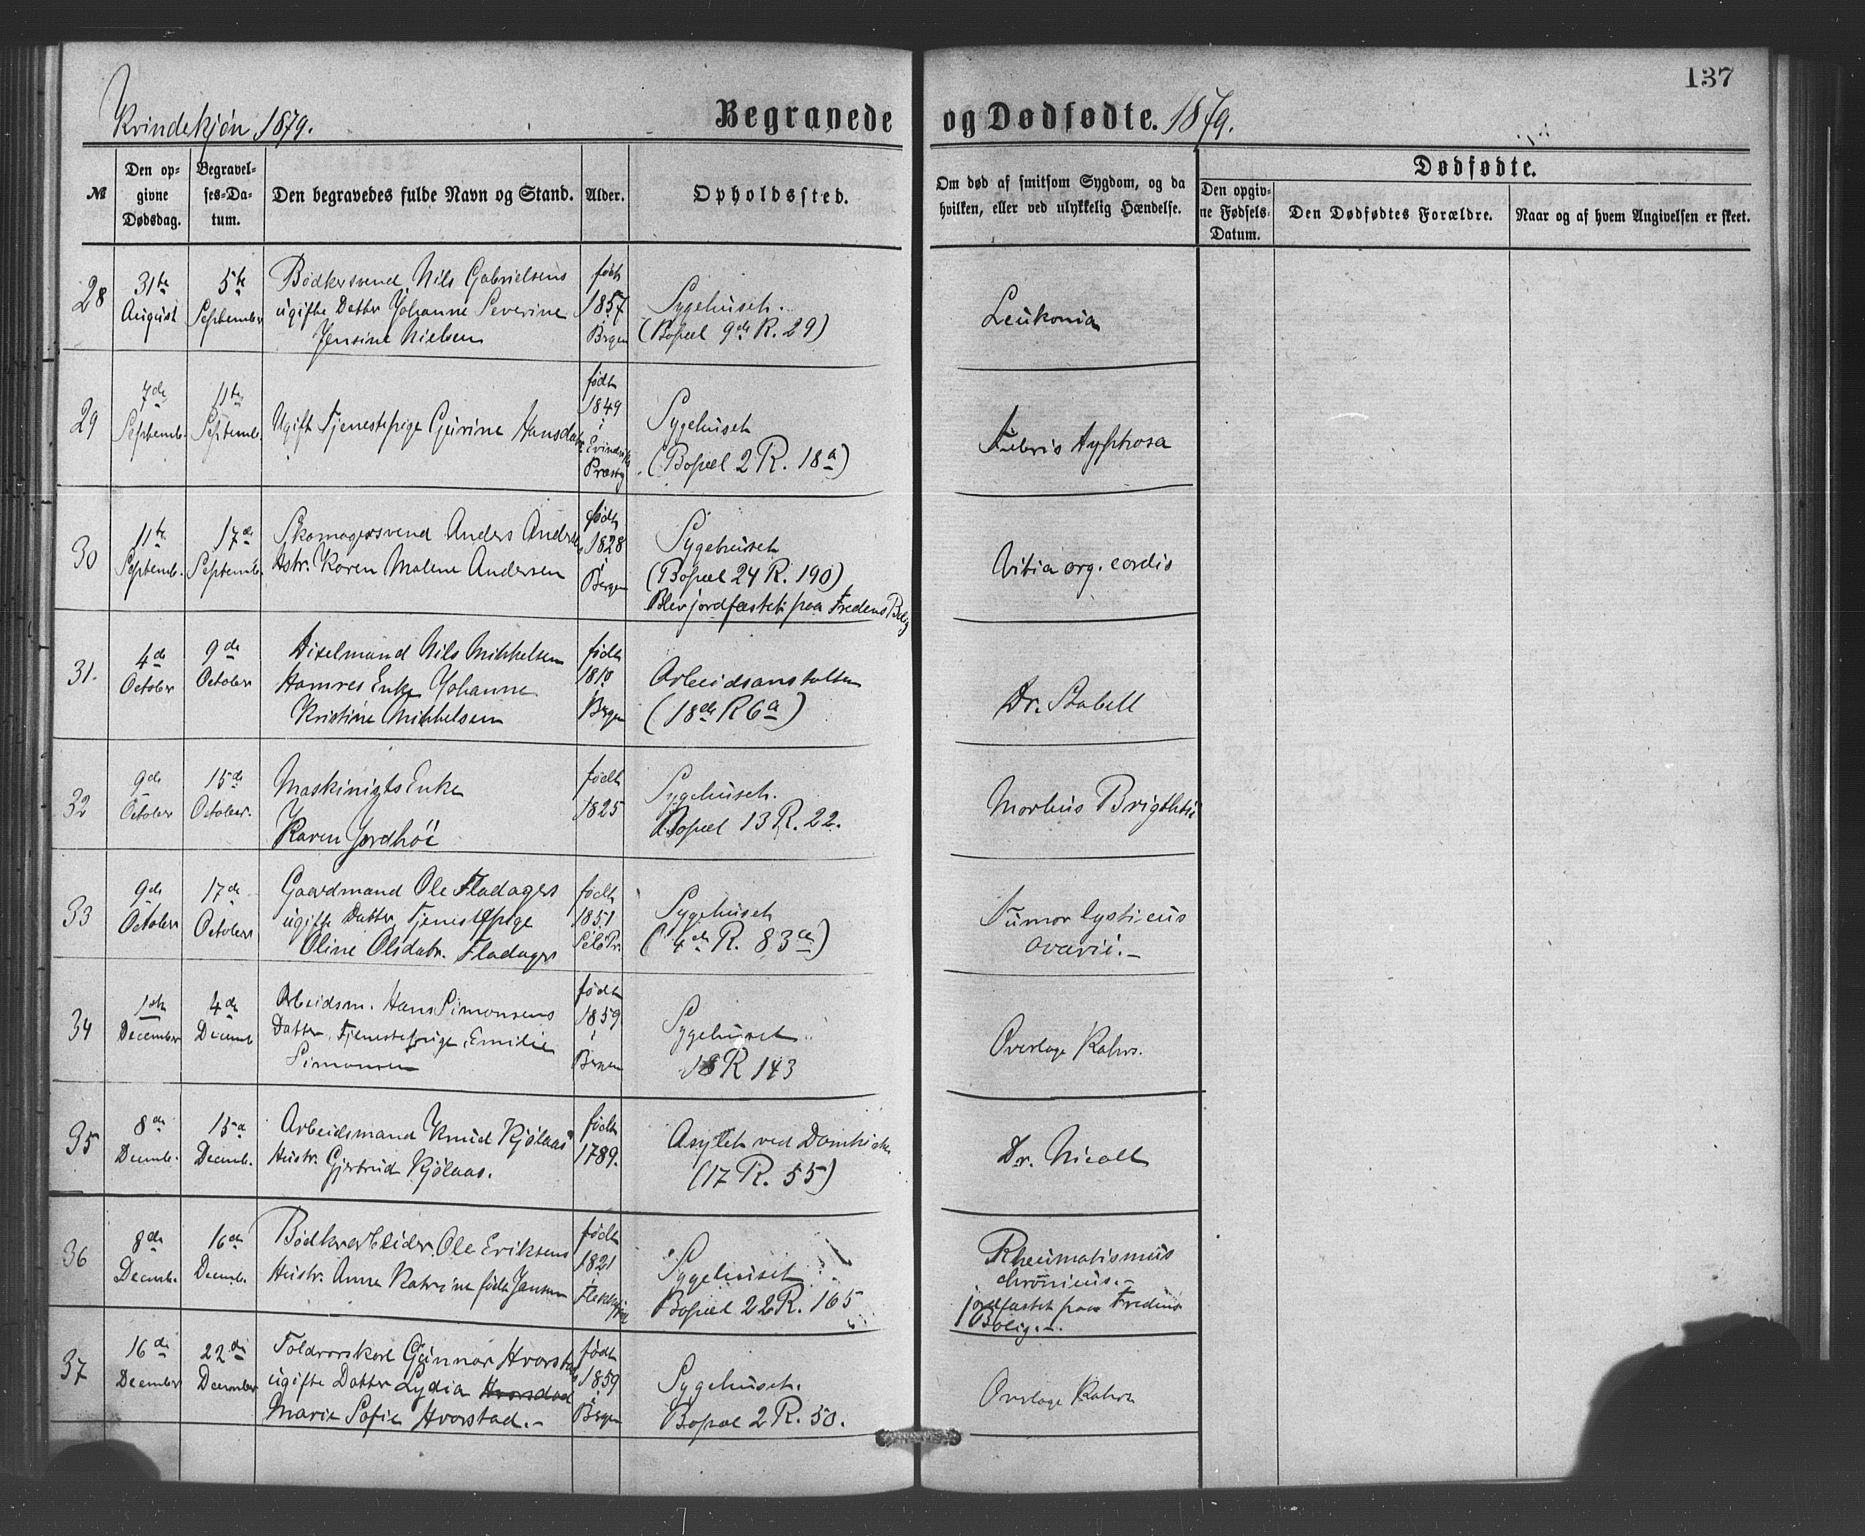 137
Kvindekjøn 1879.
Begravede og Dødfødte. 1879.
№
Den opgivne Dødsdag.
Begravelses-Datum.
Den begravedes fulde Navn og Stand.
Alder.
Opholdssted.
Om død af smitsom Sygdom, og da hvilken, eller ved ulykkelig Hændelse.
Dødfødte.
Den opgivne Fødsels-Datum.
Den Dødfødtes Forældre.
Naar og af hvem Angivelsen er skeet.
28
31te August
5te September
Bødkersvend Nils Gabrielsens
ugifte Datter Johanne Severine
Jensine Nielsen
født 1857 Bergen
Sygehuset.
(Bopæl 9de R. 29)
Leukonia
29
7de Septemb.
11te Septemb.
Ugift Tjenestepige Gurine Hansdatr.
født 1849 i Evindvik Præstg
Sygehuset
(Bopæl 2 R. 18a)
Febris typhosa
30
11te Septemb.
17de Septemb.
Skomagersvend Anders Andersens
Hstr. Karen Malene Andersen
født 1828 i Bergen
Sygehuset
(Bopæl 24 R. 190)
Blev jordfæstet paa Fredens Bolig
Vitia org. cordis
31.
4de October
9de October
Diselmand Nils Mikkelsen
Hamres Enke Johanne
Kristine Mikkelsen
født 1810 i Bergen
Arbeidsanstalten
(18de R 6a)
Dr. Stabell
32
9de October
15de October.
Maskinists Enke
Karen Jordhöi
født 1825
Sygehuset.
Bopæl 13 R. 22.
Morbus Brigthtii
33
9de October
17de October
Gaardmand Ole Fladagers
ugifte Datter Tjenestepige
Oline Olsdatr. Fladager
født 1851 Selö Pr.
Sygehuset
(4de R. 83a)
Tumor cysticus
ovarii.-
34
1ste December
4de Decemb
Arbeidsm. Hans Simonsens
Datter, Tjenestepige, Emilie
Simonsen
født 1859 i Bergen
Sygehuset
18 R 143
Overlæge Rahrs.
35
8de Decemb.
15d Decemb.
Arbeidsmand Knud Kjölaas'
Hustr. Gjertrud Kjölaas.
født 1789.
Asylet ved Domkirken
(17 R. 55)
Dr. Nicoll
36
8de Decemb.
16de Decemb.
Bødkerarbeider Ole Eriksens
Hustr. Anne Katrine født Jansen
født 1821 i
Sygehuset
Bopæl 22 R. 165
Rheumatismus
chronicus.-
jordfæstet paa Fredens
Bolig.-
37
16de December
22de December
Toldrorskarl Gunnar Hvorstads
ugifte Datter Lydia
Marie Sofie Hvorstad.-
født 1859 i Bergen
Sygehuset.
Bopæl 2 R. 50.
Overlæge Rahrs